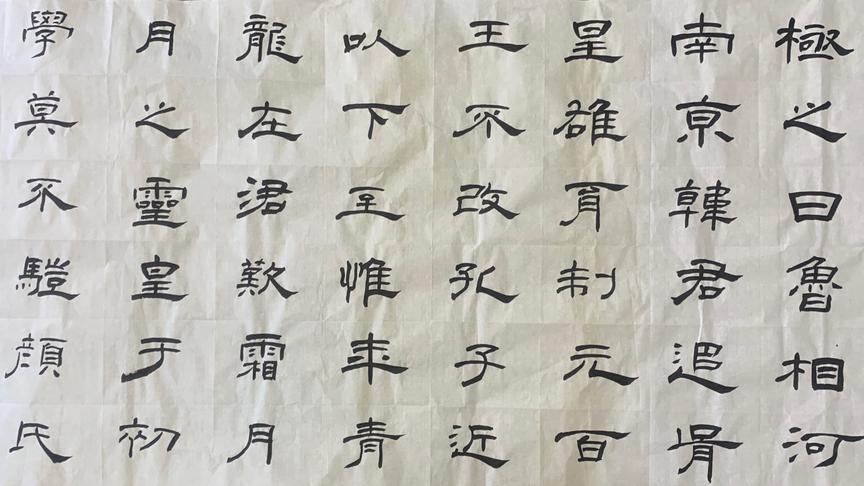 極之日魯相河
南京韓君追胥
皇雄育制元百
王不改孔子近
以下至惟年青
龍在涒歎霜月
月之靈皇于初
學莫不驥顏氏